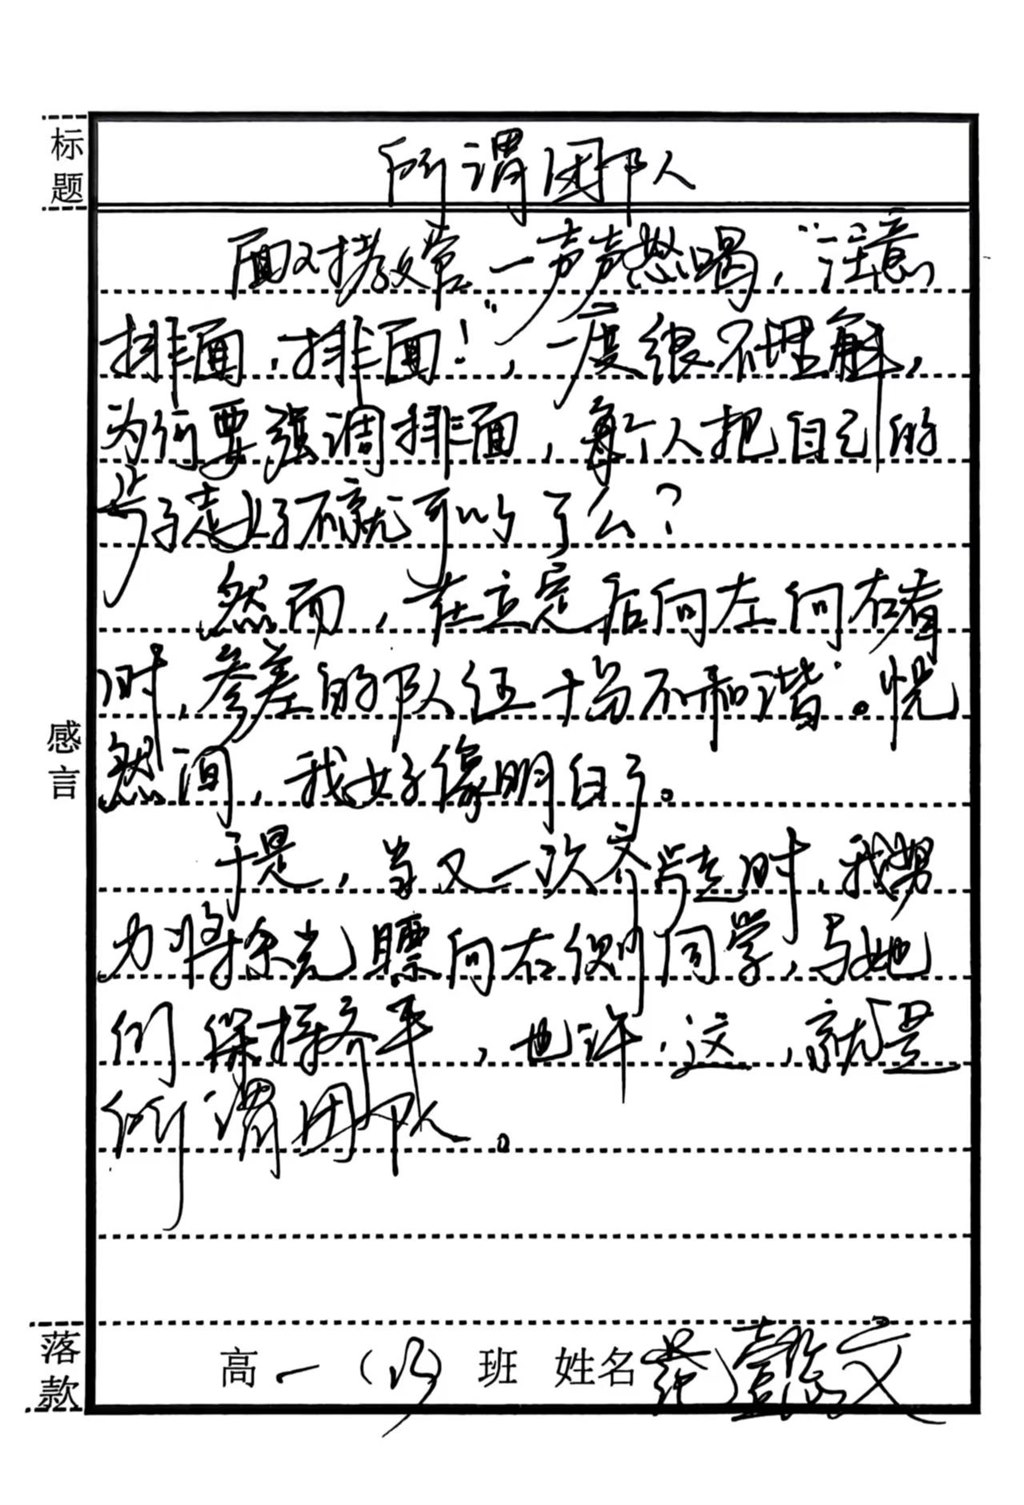 标题
所谓团队
面对教官一声声怒喝，“注意
排面，排面！”，一度很不理解，
为何要强调排面，每个人把自己的
步子走好不就可以了么？
然而，在立定后向左向右看
时，参差的队伍十当不和谐。恍
然间，我好像明白了。
于是，当又一次齐步走时，我努
力将余光瞟向右侧同学，与她
们保持齐平，也许，这，就是
所谓团队。
感言
落款
高一（13）班 姓名 懿文